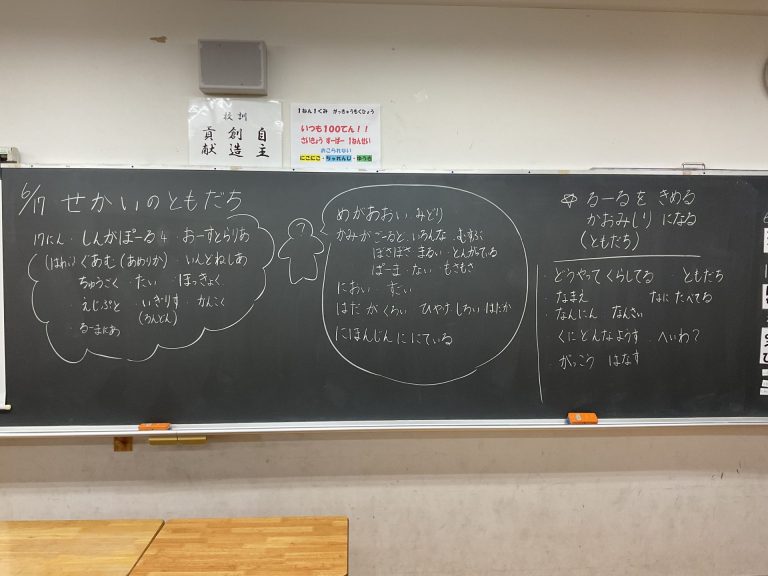 校訓
自主
創造
貢献
1ねん1くみ がっきゅうもくひょう
いつも100てん!!
さいきょう すーぱー 1ねんせい
おこられない
にこにこ・ちゃれんじ・ゆうき
6/17 せかいのともだち
17にん・しんがぽーる4・おーすとらりあ
(はわい)ぐあむ(あめりか)・いんどねしあ
ちゅうごく・たい・ほっきょく
・えじぷと・いぎりす・かんこく
(ろんどん)
・るーまにあ
?
めがあおい・みどり
かみがごーるど・いろんな・むすぶ
ぼさぼさ まるい・とんがっている
ぱーま・ない・もさもさ
におい・すごい
はだ が くろい ひやけ しろい はだか
にほんじん に にている
☆ るーるを きめる
かおみしり になる
(ともだち)
・どうやって くらしてる ・ともだち
・なまえ ・なに たべてる
・なんにん なんさい
・くに どんなようす ・へいわ?
・がっこう はなす